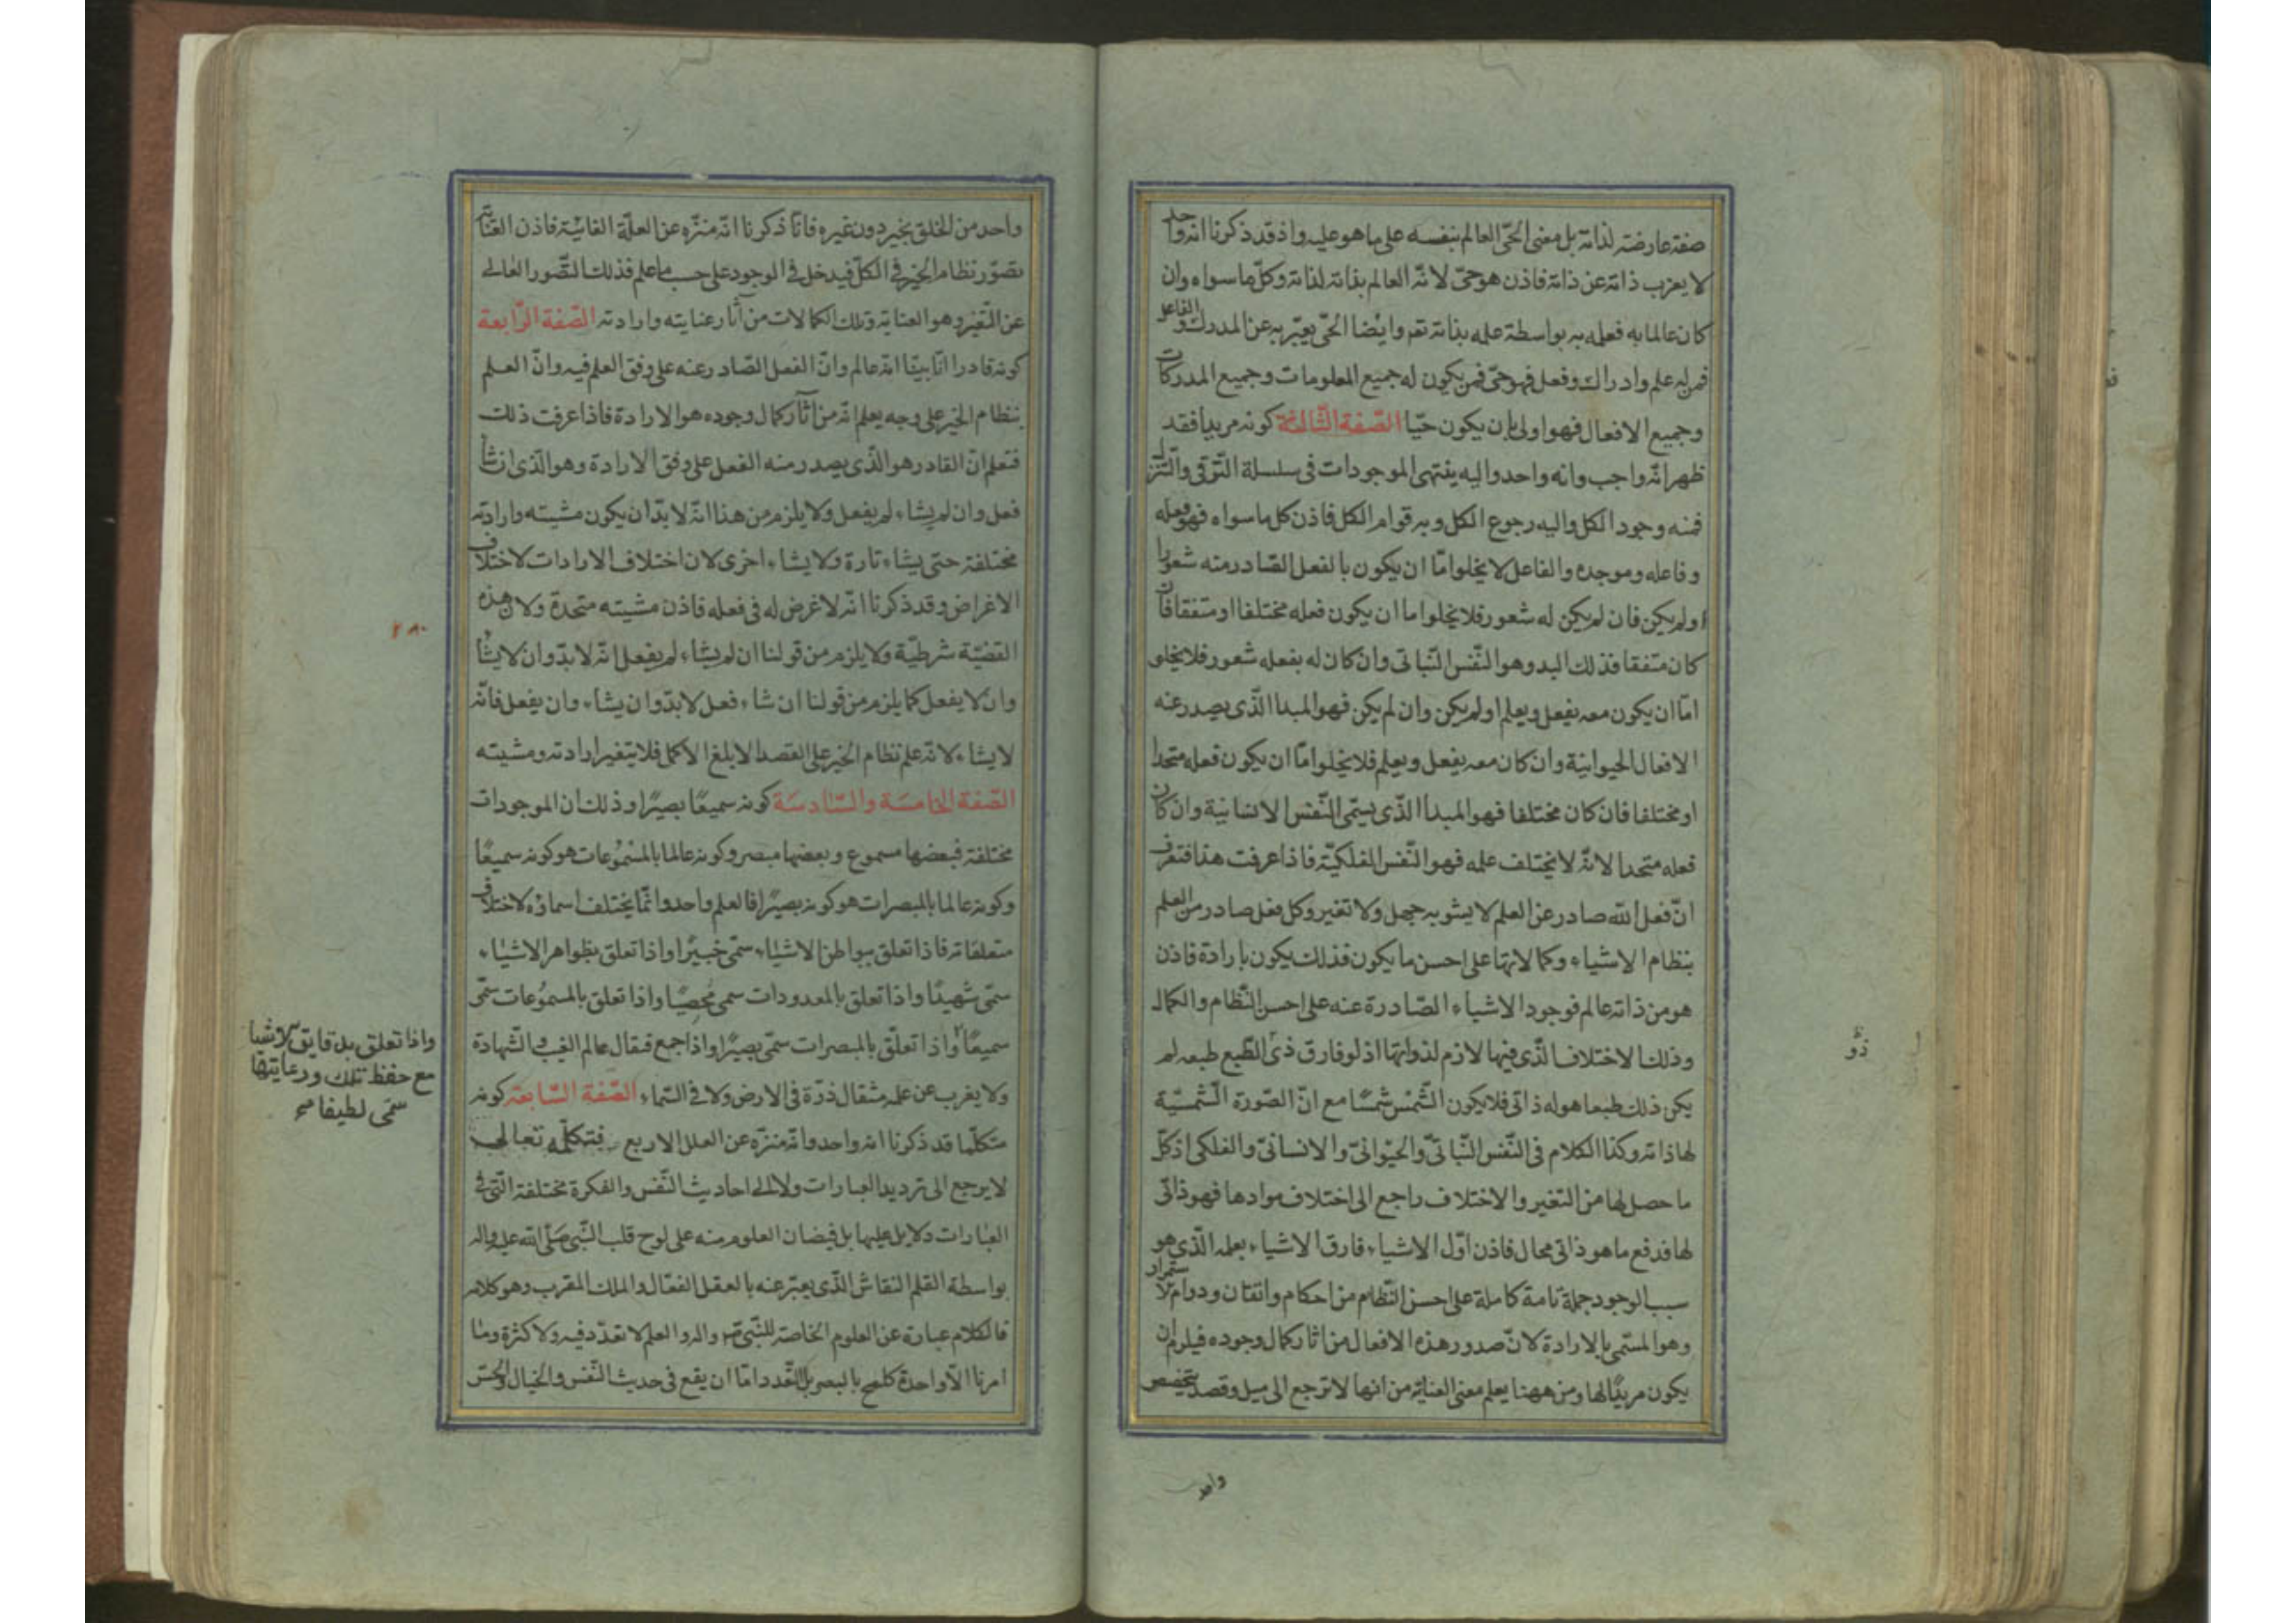 صفة عارضة لذاته بل معنى الحىّ العالم بنفسه على ما هو عليه واذ قد ذكرنا انه واحد
لا يعزب ذاته عن ذاته فاذن هو حىّ لانّه العالم بذاته لذاته وكلّ ما سواه وان
كان عالما به فعله به بواسطة علمه بذاته تعم وايضا الحىّ يعبّر به عن المدرك والفاعل
فمن له علم وادراك وفعل فهو حىّ فمن يكون له جميع المعلومات وجميع المدركات
وجميع الافعال فهو اولى بان يكون حيّا الصّفة الثّالثة كونه مريدا فقد
ظهر انّه واجب وانه واحد واليه ينتهى الموجودات فى سلسلة التّرقى والتّنزل
فمنه وجود الكل واليه رجوع الكل وبه قوام الكل فاذن كل ما سواه فهو فعله
وفاعله وموجده والفاعل لا يخلوا مّا ان يكون بالفعل الصّادر منه شعورا
او لم يكن فان لم يكن له شعور فلا يخلوا ما ان يكون فعله مختلفا او متفقا فان
كان متفقا فذلك البدو هو النّفس النّباتى وان كان له بفعله شعور فلا يخلو
امّا ان يكون معه يفعل ويعلم او لم يكن وان لم يكن فهو المبدا الذّى يصدر عنه
الافعال الحيوانيّة وان كان معه يفعل ويعلم فلا يخلوا مّا ان يكون فعله متحدا
او مختلفا فان كان مختلفا فهو المبدا الذّى يسمّى النّفس الانسانية وان كان
فعله متحدا لانّه لا يختلف علمه فهو النّفس الفلكيّة فاذا عرفت هذا فتعرف
انّ فعل الله صادر عن العلم لا يشوبه جهل ولا تغير وكل فعل صادر من العلم
بنظام الاشياء وكمالاتها على احسن ما يكون فذلك يكون بارادة فاذن
هو من ذاته عالم فوجود الاشياء الصّادرة عنه على احسن النّظام والكمال
وذلك الاختلاف الذّى فيها لازم لذواتها اذ لو فارق ذى الطّبع طبعه لم
يكن ذلك طبعا هو له ذاتى فلا يكون الشّمس شمسًا مع انّ الصّورة الشّمسيّة
لها ذاته وكذا الكلام فى النّفس النّباتىّ والحيوانىّ والانسانىّ والفلكى اذ كلّ
ما حصل لها من التغير والاختلاف راجع الى اختلاف موادها فهو ذاتّى
لها فدفع ما هو ذاتى محال فاذن اوّل الاشياء فارق الاشياء بعلمه الذّى هو
سبب الوجود جملة تامة كاملة على احسن النّظام من احكام واتقان ودوام لاستمرار
وهو المسّمى بالارادة لانّ صدور هذه الافعال من اثار كمال وجوده فيلزم ان
يكون مريدًا لها ومن ههنا يعلم معنى العناية من انها لا ترجع الى ميل وقصد بتخصيص
واحد
ذو
واحد من الخلق بخير دون غيره فانّا ذكرنا انّه منزّه عن العلّة الغائيّة فاذن العناية
تصوّر نظام الخير فى الكلّ فيدخل فى الوجود على حسب ما علم فذلك التّصور العالى
عن التّغير وهو العناية وتلك الكمالات من آثار عنايته وارادته الصّفة الرّابعة
كونه قادرا انّا بيّنّا انّه عالم وانّ الفعل الصّادر عنه على وفق العلم فيه وانّ العلم
بنظام الخير على وجه يعلم انّه من آثار كمال وجوده هو الارادة فاذا عرفت ذلك
فتعلم انّ القادر هو الذّى يصدر منه الفعل على وفق الارادة وهو الذّى ان شأ
فعل وان لم يشاء لم يفعل ولا يلزم من هذا انّه لا بدّ ان يكون مشيته وارادته
مختلفة حتى يشاء تارة ولا يشاء اخرى لان اختلاف الارادات لاختلاف
الاغراض وقد ذكرنا انّه لا غرض له فى فعله فاذن مشيته متحدة ولان هذه
القضيّة شرطيّة ولا يلزم من قولنا ان لم يشاء لم يفعل انّه لا بدّ وان لا يشأ
وان لا يفعل كما يلزم من قولنا ان شاء فعل لا بدّ وان يشاء وان يفعل فانّه
لا يشاء لانّه علم نظام الخير على القصد الابلغ الاكمل فلا يتغير ارادته ومشيته
الصّفة الخامسَة والسّادسَة كونه سميعًا بصيرًا وذلك ان الموجودات
مختلفة فبعضها مسموع وبعضها مبصر وكونه عالما بالمسموعات هو كونه سميعًا
وكونه عالما بالمبصرات هو كونه بصيرًا فالعلم واحد وانّما يختلف اسماؤه لاختلاف
متعلقاته فاذا تعلق ببواطن الاشياء سمّى خبيرًا واذا تعلق بظواهر الاشياء
سمّى شهيدًا واذا تعلق بالمعدودات سمى محصيًا واذا تعلق بالمسموعات سمّى
سميعًا واذا تعلّق بالمبصرات سمّى بصيرًا واذا جمع فيقال عالم الغيب والشّهادة
ولا يغرب عن علمه مثقال ذرّة فى الارض ولا فى السّماء الصّفة السّابعة كونه
متكلّما قد ذكرنا انه واحد وانّه منزّه عن العلل الاربع فتكلّمه تعالى
لا يرجع الى ترديد العبارات ولا الى احاديث النّفس والفكرة مختلفة التّى فى
العبارات دلايل عليها بل فيضان العلوم منه على لوح قلب النّبى صلّى الله عليه واله
بواسطة القلم النقاش الذّى يعبّر عنه بالعقل الفعّال والملك المقرب وهو كلامه
فالكلام عبارة عن العلوم الخاصة للنّبى ص واله والعلم لا تعدّد فيه ولا كثرة وما
امرنا الّا واحدة كلمح بالبصر بل التّعدد امّا ان يقع فى حديث النّفس والخيال والحسّ
٢٨٠
واذا تعلق بدقايق الاشيا
مع حفظ تلك ورعايتها
سمّى لطيفا صح